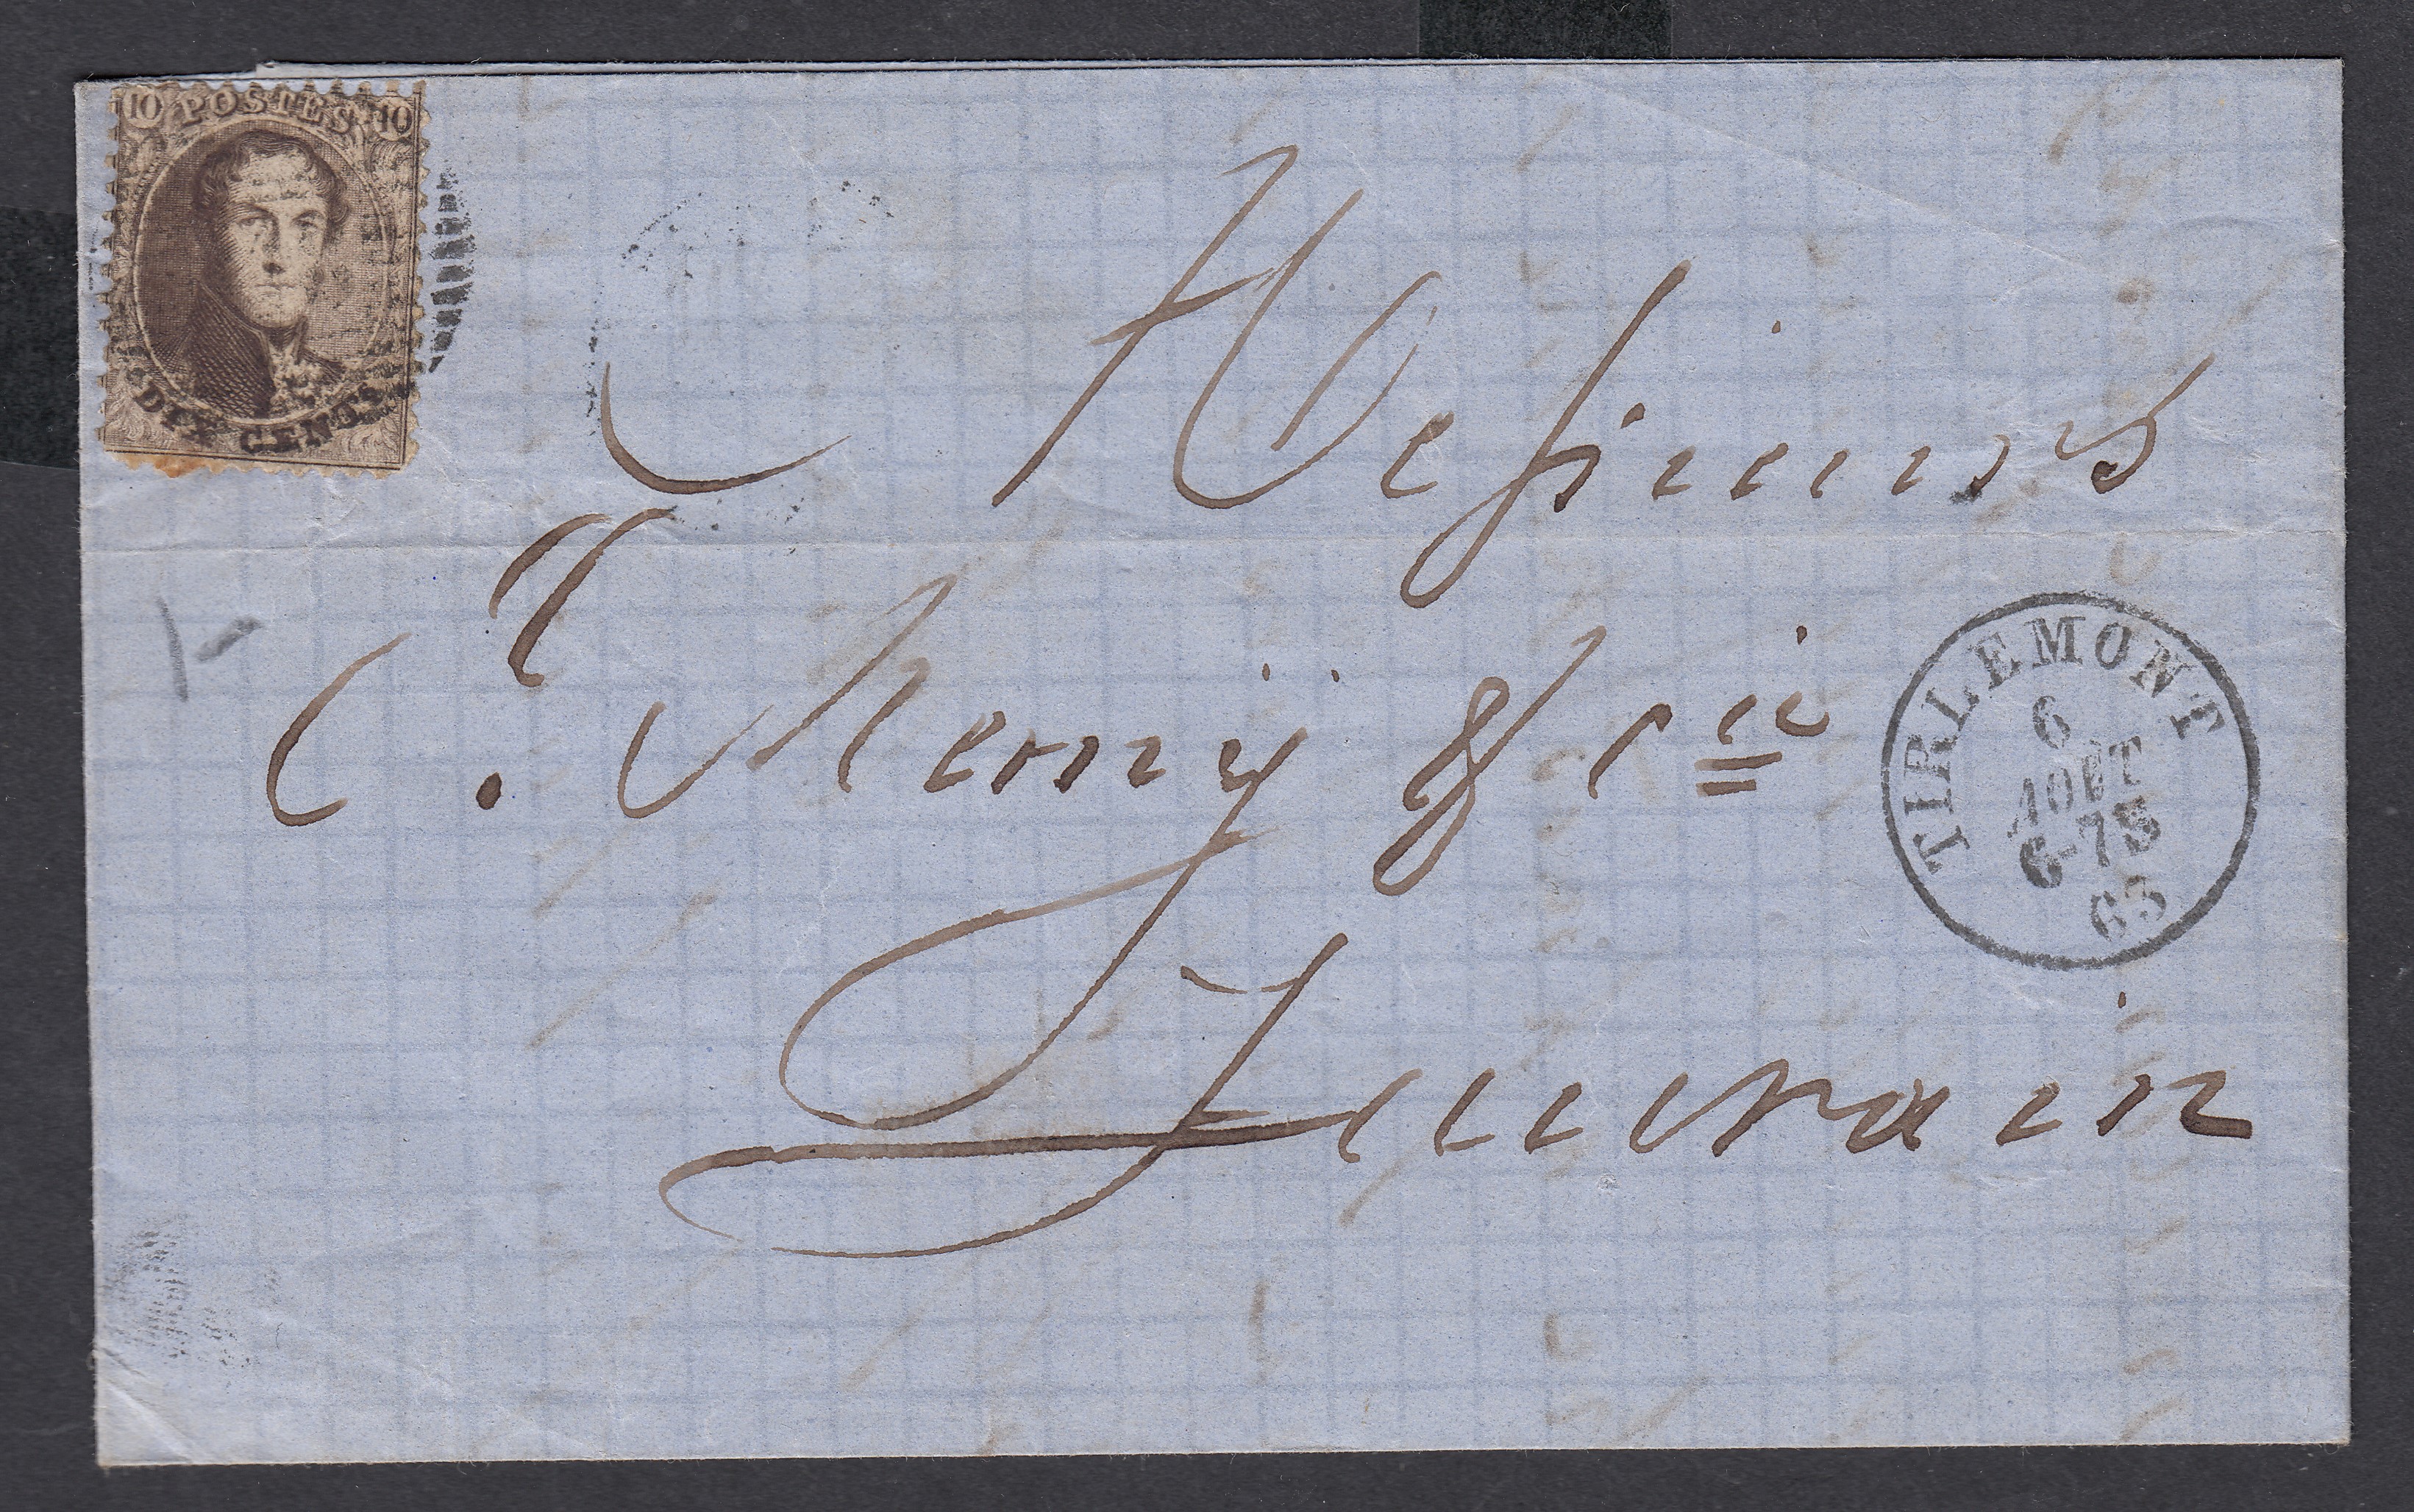 10 POSTES 10
DIX CENTS
Messieurs
C. Henry & Cie
Louvain
TIRLEMONT
6
AOUT
6-7S
63